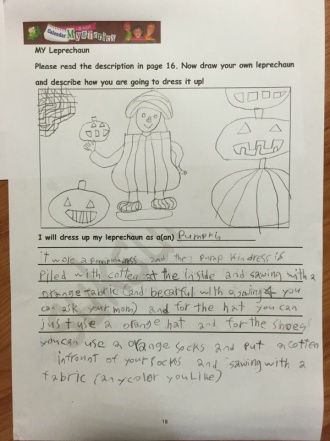 Calendar Mysteries
MY Leprechaun
Please read the description in page 16. Now draw your own leprechaun
and describe how you are going to dress it up!
I will dress up my leprechaun as a(an) Pumpkin
it wore a and the Pump kindress is
Piled with cotten at the inside and sawing with a
orange fabric (and be careful with a sawing you
can ask your mom) and for the hat you can
just use a orange hat and for the shoes
you can use a orange socks and put a cotten
infront of your socks and sawing with a
fabric (any color you like)
18